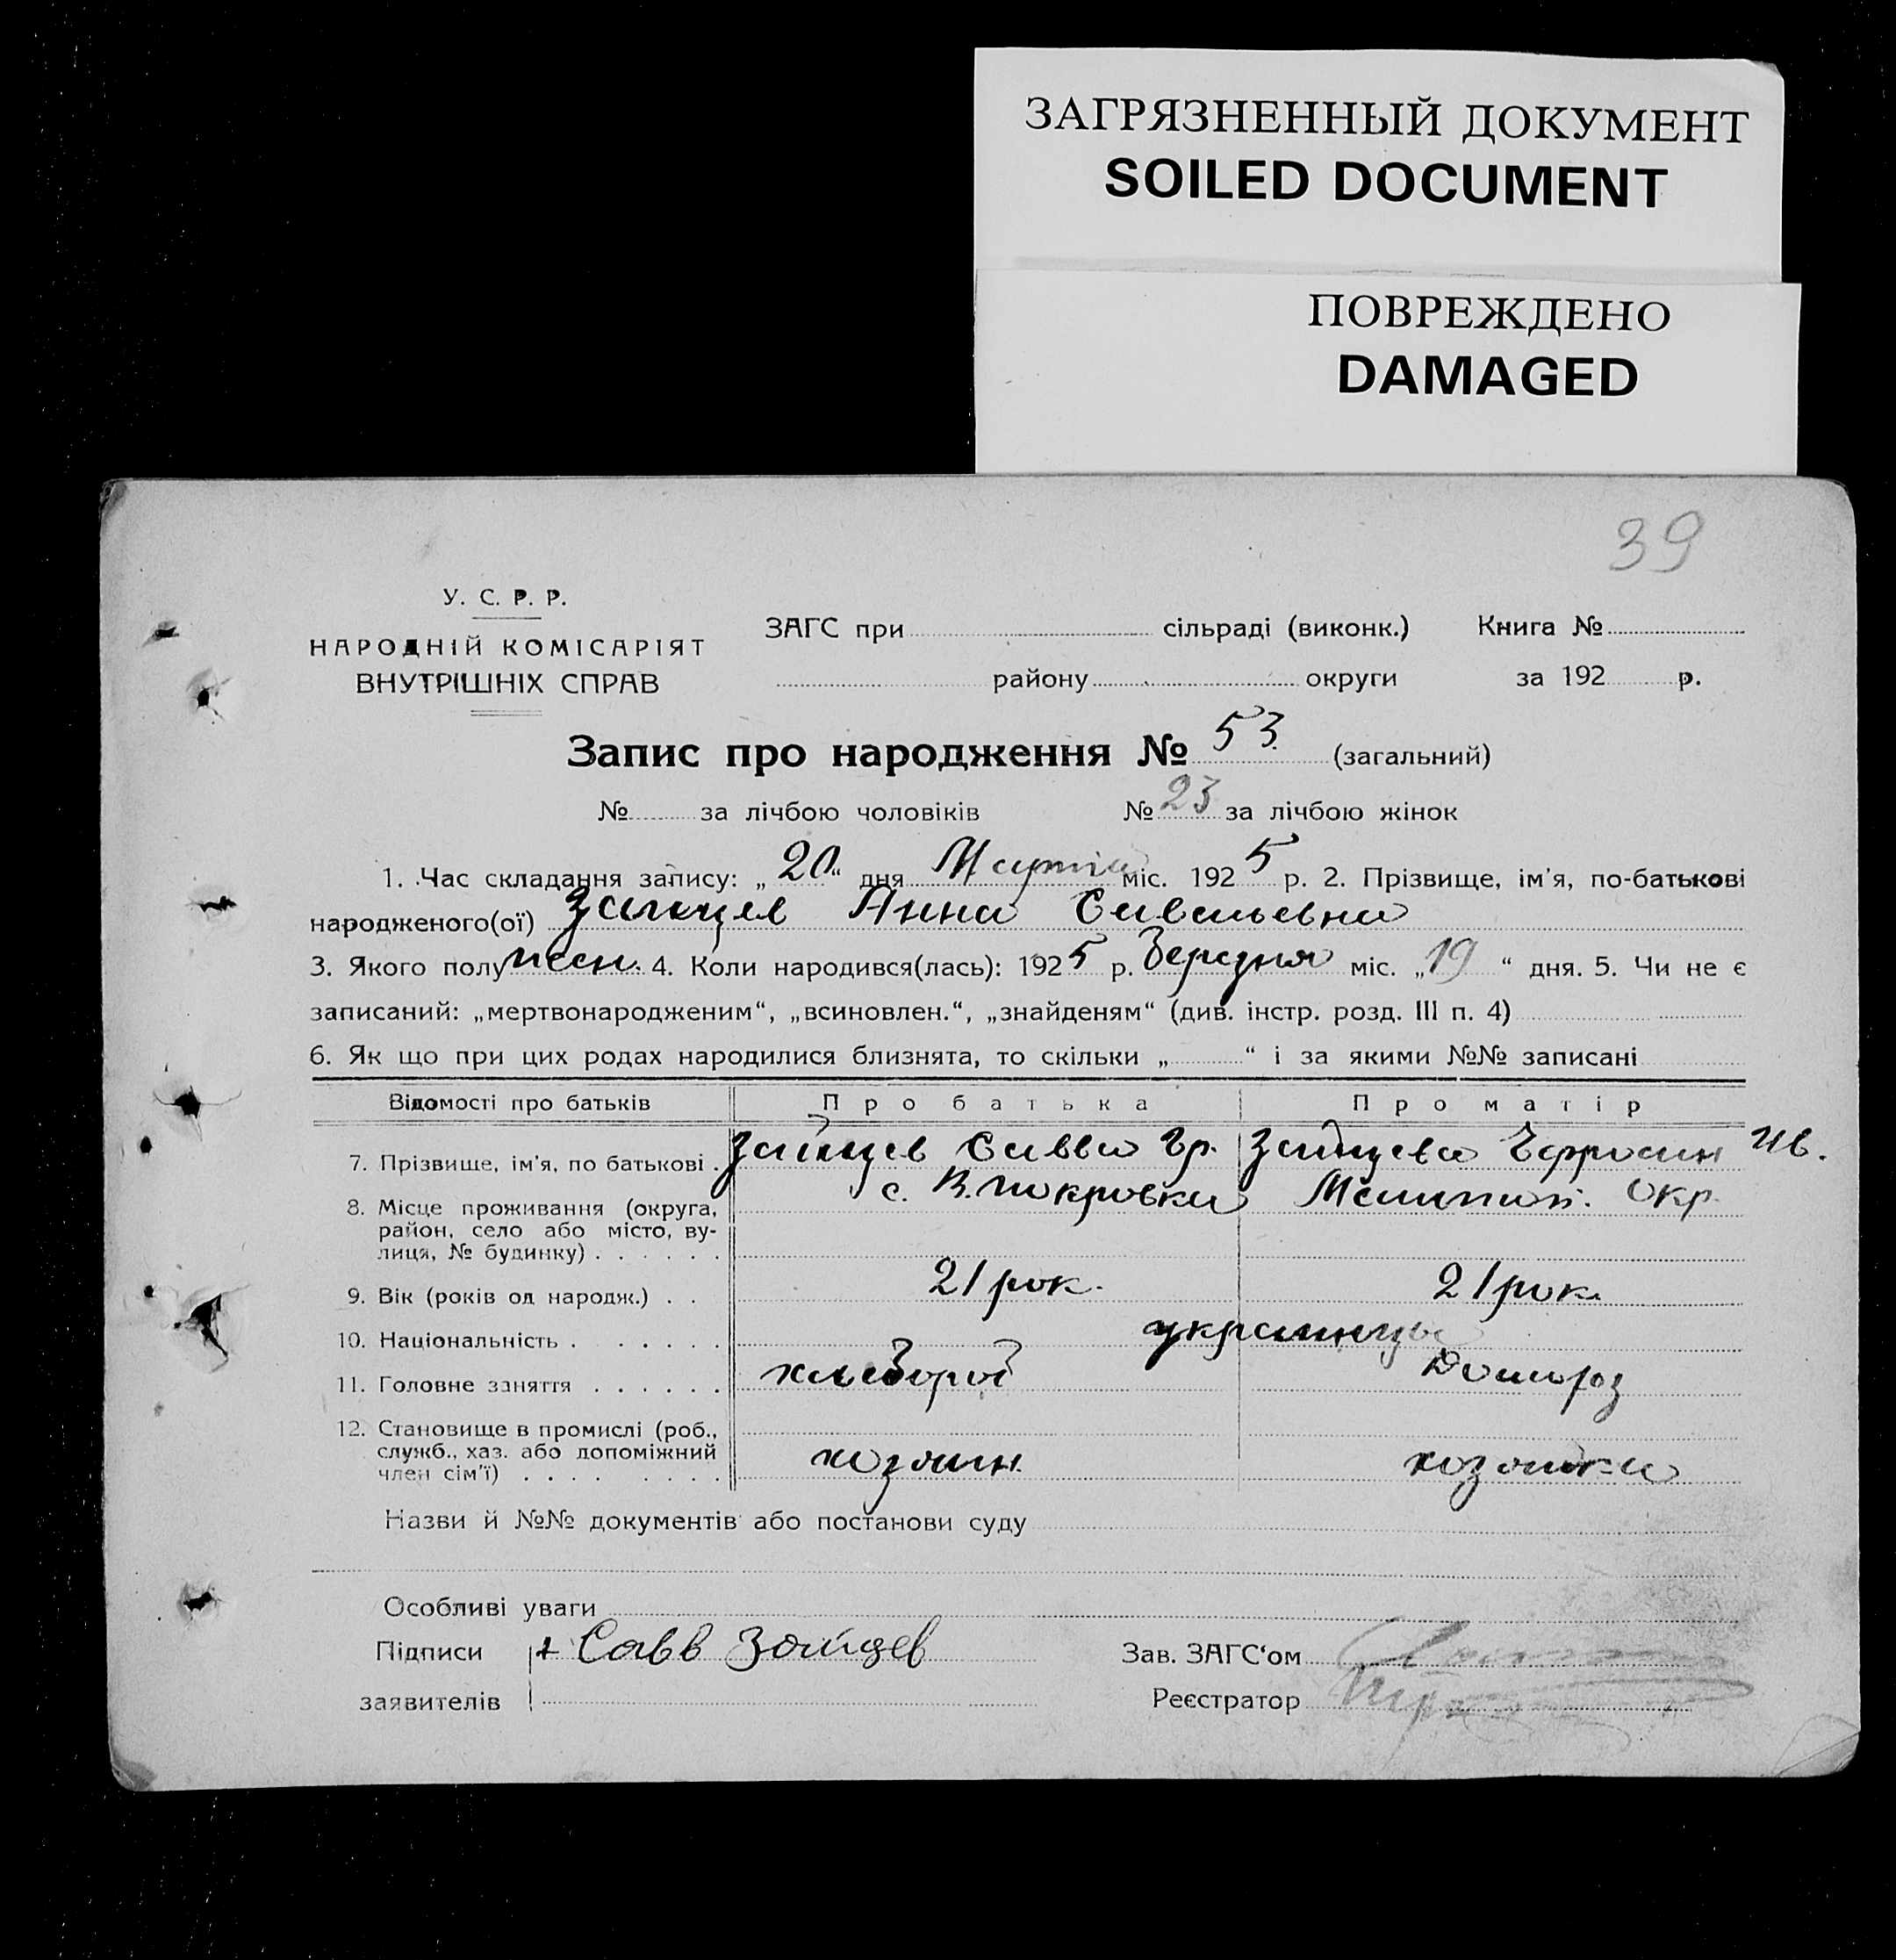 ЗАГРЯЗНЕННЫЙ ДОКУМЕНТ
SOILED DOCUMENT
ПОВРЕЖДЕНО
DAMAGED
39
У. С. Р. Р.
НАРОДНІЙ КОМІСАРІЯТ
ВНУТРІШНІХ СПРАВ
ЗАГС при сільраді (виконк.) Книга №
району округи за 192 р.
Запис про народження № 53 (загальний)
№ за лічбою чоловіків № 23 за лічбою жінок
1. Час складання запису: „20“ дня міс. 1925 р. 2. Прізвище, ім'я, по-батькові
народженого(ої) Зайцев Анна Савельевна
3. Якого полу жен. 4. Коли народився(лась): 1925 р. Березня міс. „19“ дня. 5. Чи не є
записаний: „мертвонародженим“, „всиновлен.“, „знайденям“ (див. інстр. розд. III п. 4)
6. Як що при цих родах народилися близнята, то скільки „ “ і за якими №№ записані
Відомості про батьків Про батька Про матір
7. Прізвище, ім'я, по батькові . Зайцев Савва Гр. Зайцева Ефросин Ив.
8. Місце проживання (округа, с. В. Покровка Мелитоп. Окр.
район, село або місто, ву-
лиця, № будинку) . . . . . .
9. Вік (років од народж.) . . 21 рок. 21 рок.
10. Національність . . . . . . украинцы
11. Головне заняття . . . . . . хлебороб Домороз
12. Становище в промислі (роб.,
служб., хаз. або допоміжний хозяин. хозяйка
член сім'ї) . . . . . . . .
Назви й №№ документів або постанови суду
Особливі уваги
Підписи + Савв Зайцев Зав. ЗАГС'ом
заявителів Реєстратор